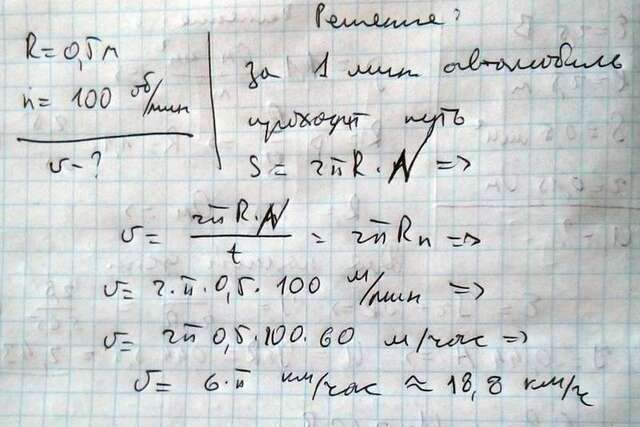 Решение:
R = 0,5 м
n = 100 об/мин
v - ?
За 1 мин автомобиль
проходит путь
S = 2πR · N =>
v = 2πR·N/t = 2πRn =>
v = 2·π·0,5·100 м/мин =>
v = 2π 0,5·100·60 м/час =>
v = 6·π км/час ≈ 18,8 км/ч